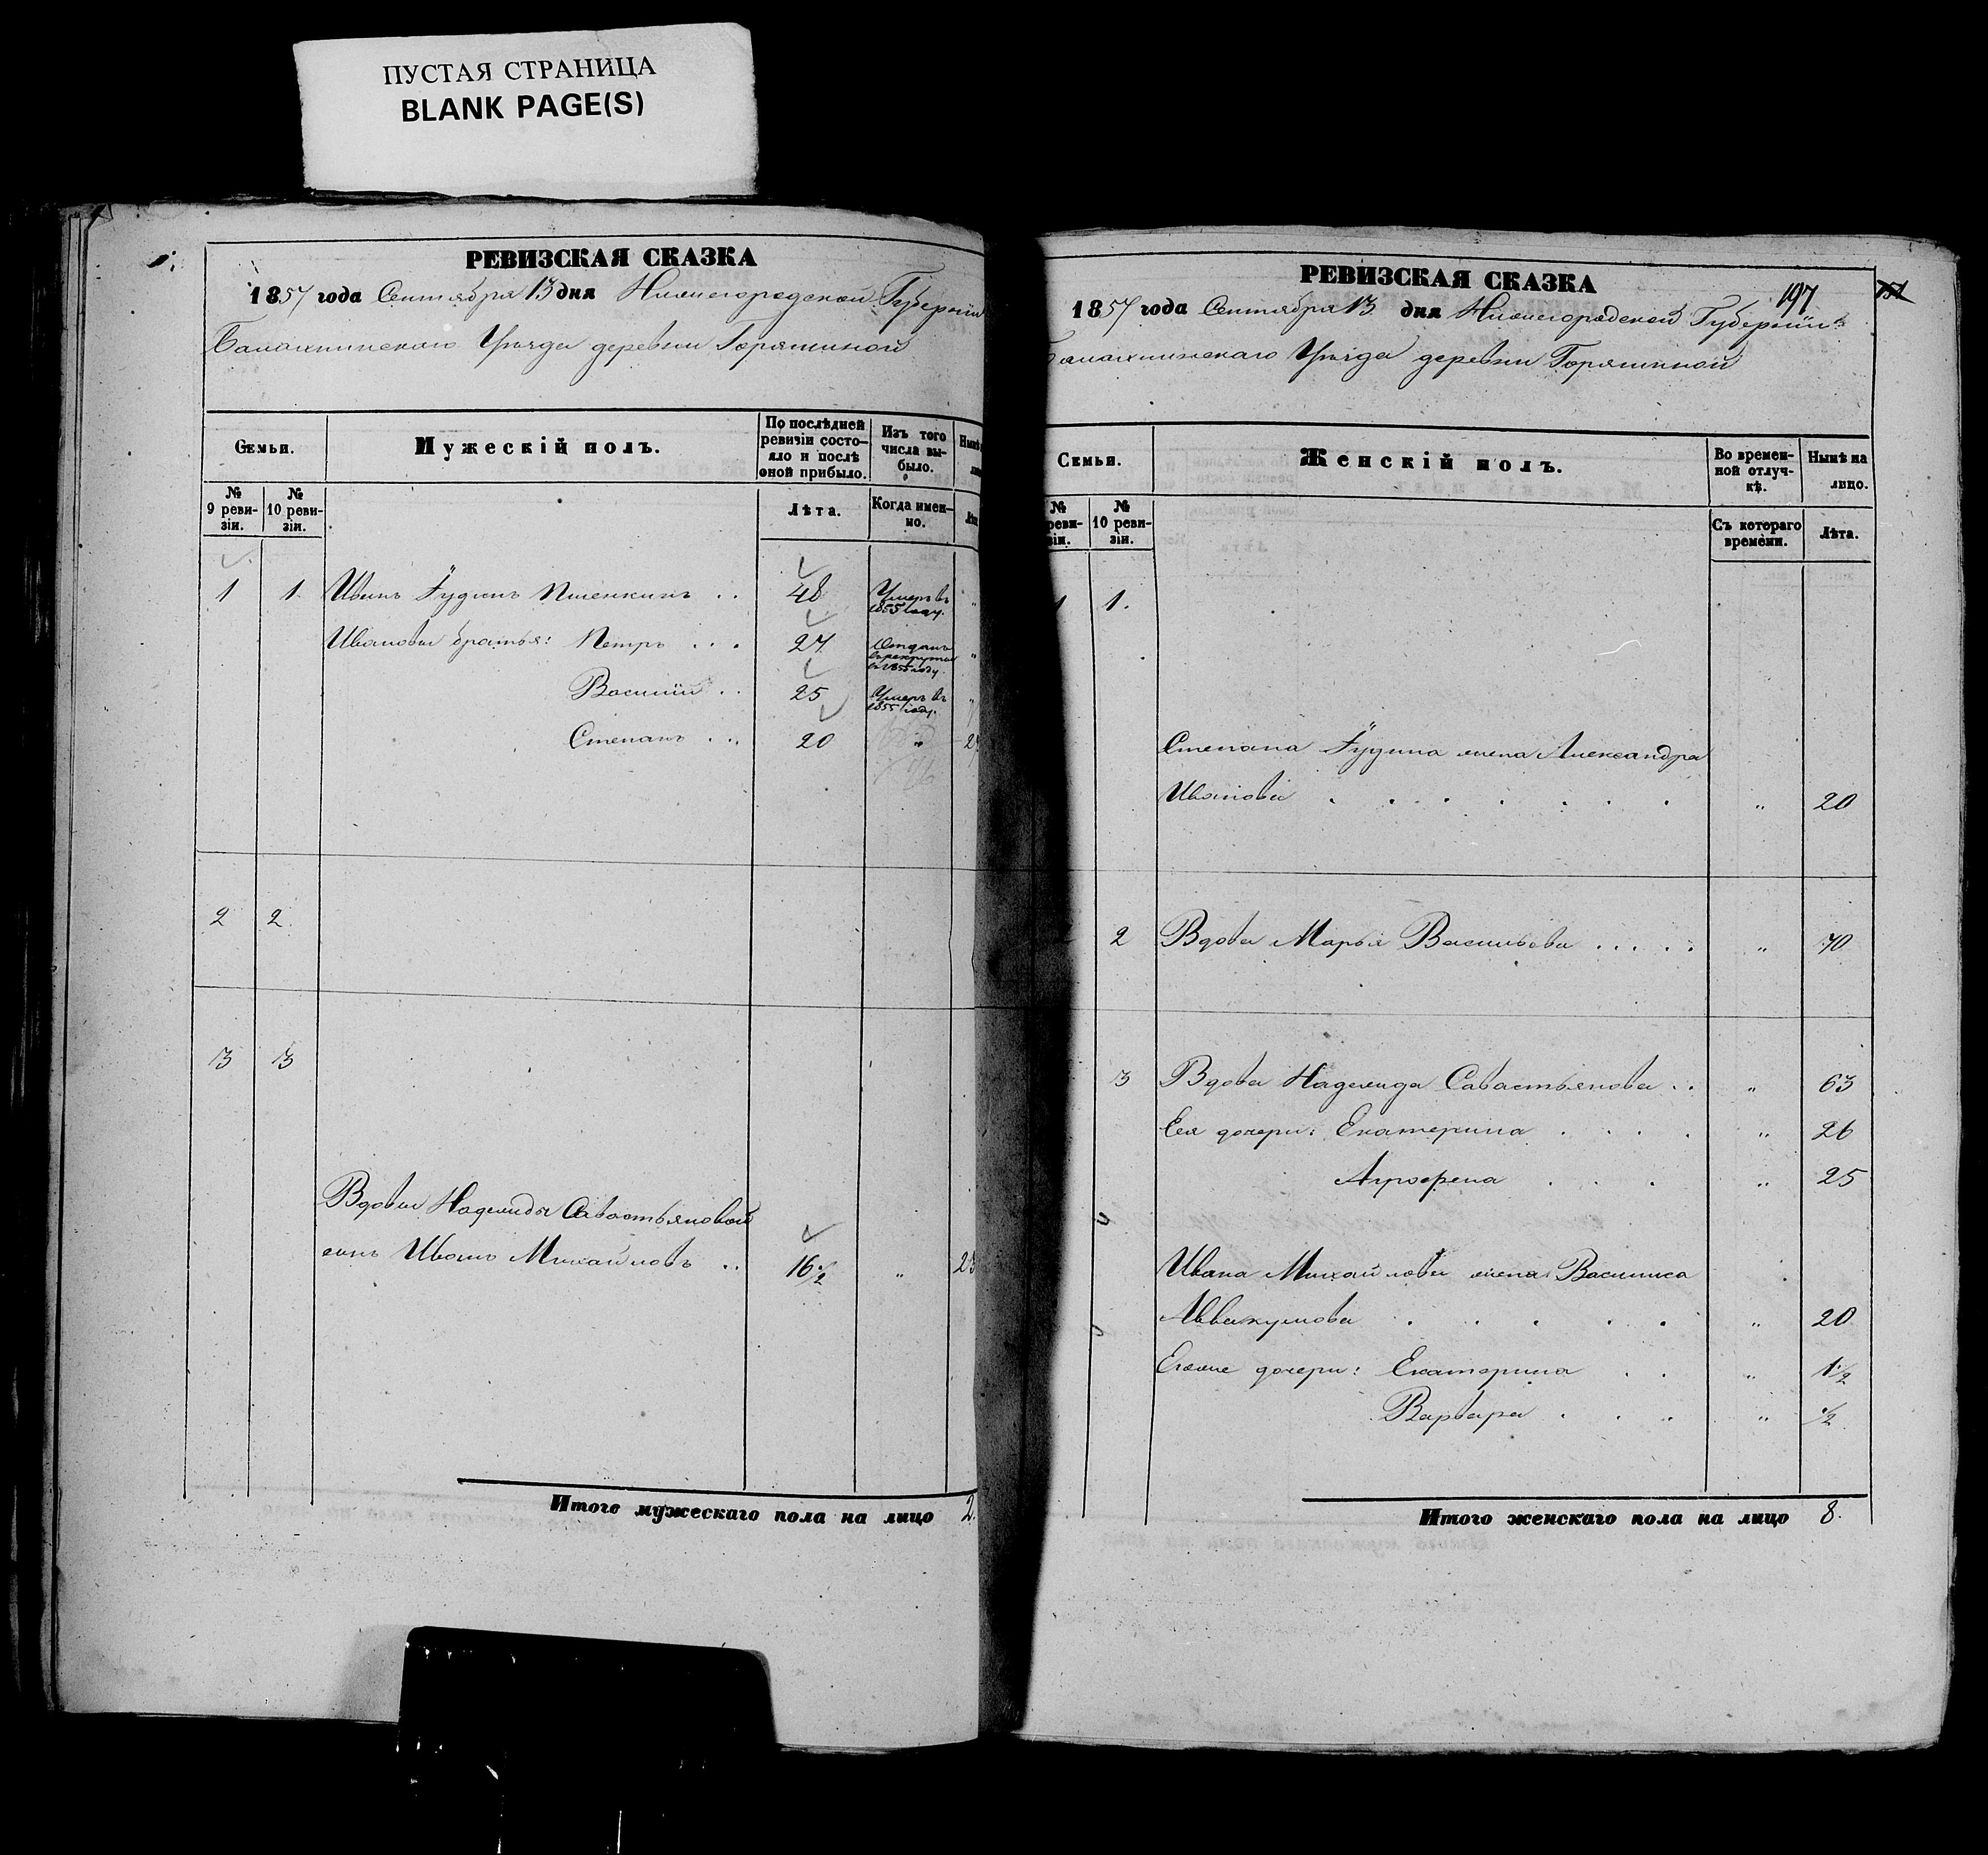 ПУСТАЯ СТРАНИЦА
BLANK PAGE(S)
РЕВИЗСКАЯ СКАЗКА
1857 года Сентября 13 дня Нижегородской Губерніи
Балахнинскаго Уѣзда деревни Горяминой
Семьи.
Мужескій полъ.
По послѣдней ревизіи состояло и послѣ оной прибыло.
Изъ того числа выбыло.
Нынѣ
№ 9 ревизіи.
№ 10 ревизіи.
Лѣта.
Когда именно.
1 1 Иванъ Гудинъ Пшенкинъ .. 48 Умеръ въ 1855 году. "
Ивановы братья: Петръ ... 27 Отданъ въ рекруты въ 1855 году. "
Василій .. 25 Умеръ въ 1855 году. "
Степанъ ... 20 " 27
2 2
3 3
Вдовы Надежды Савастьяновой
сынъ Иванъ Михайловъ .. 16 1/2 " 23
Итого мужескаго пола на лицо 2.
РЕВИЗСКАЯ СКАЗКА
197
151
1857 года Сентября 13 дня Нижегородской Губерніи
Балахнинскаго Уѣзда деревни Горяминой
Семьи.
Женскій полъ.
Во временной отлучкѣ.
Нынѣ на лицо.
№ ревизіи.
№ 10 ревизіи.
Съ котораго времени.
Лѣта.
1 1.
Степана Гудина жена Александра
Иванова . . . . . . . " 20
2 Вдова Марья Васильева ..... " 70
3 Вдова Надежда Савастьянова .. " 63
Ея дочери: Екатерина . . . . " 26
Агрофена . . . " 25
Ивана Михайлова жена Василиса
Аввакумова . . . . . " 20
Егоже дочери: Екатерина . . " 1 1/2
Варвара . . . " 1/2
Итого женскаго пола на лицо 8.